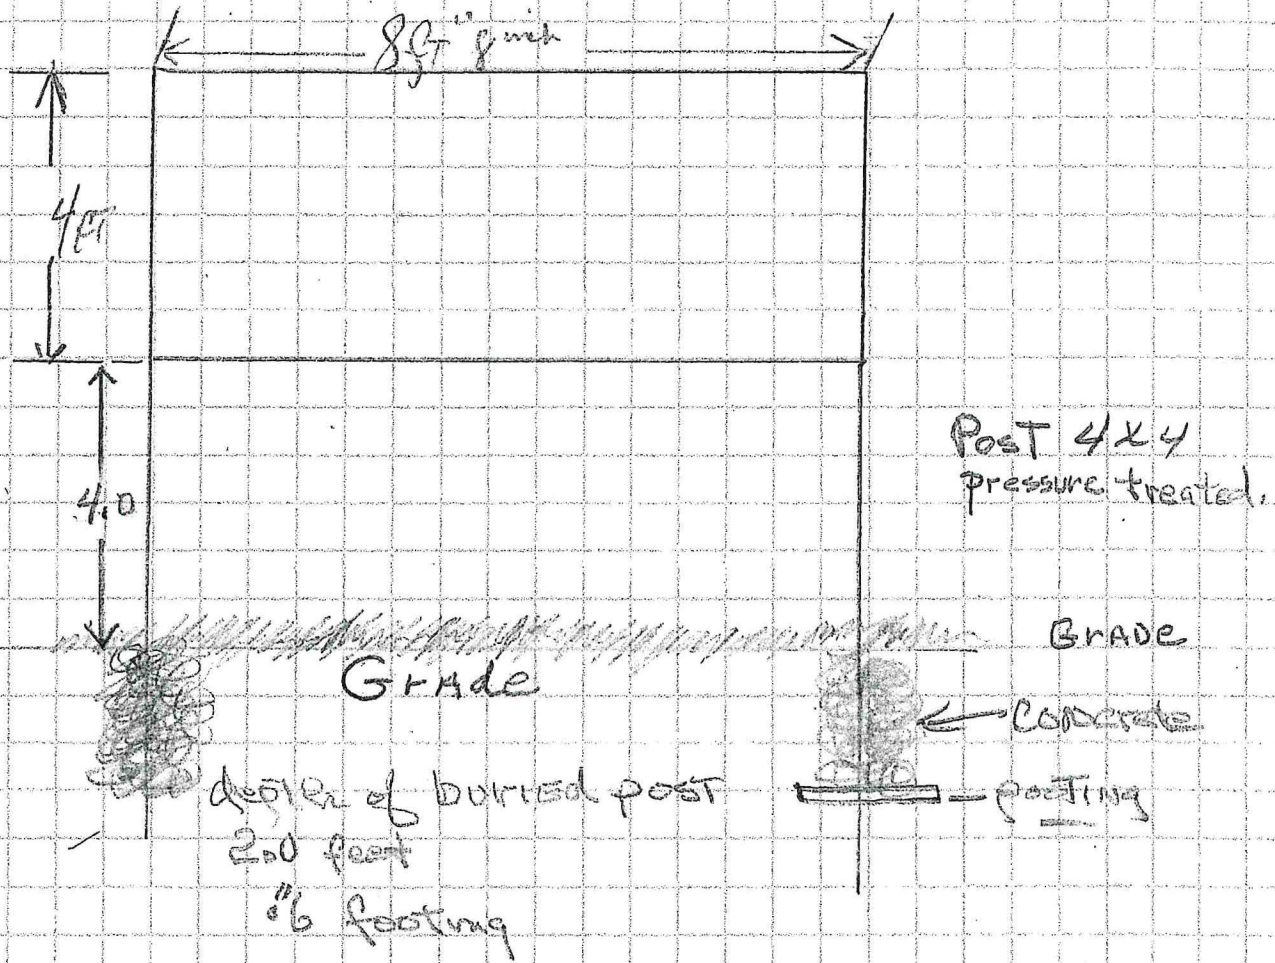 8 FT " 8 inch
4 FT
4.0
Post 4x4
pressure treated.
Grade
Grade
Concrete
depth of buried post
footing
2.0 feet
"6 footing